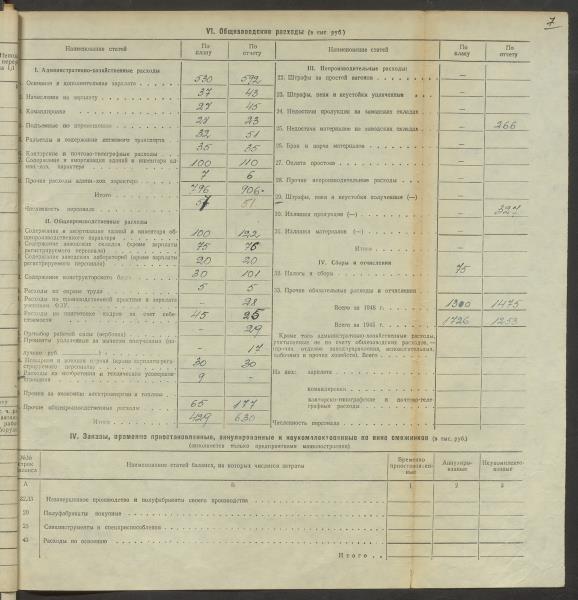 7
VI. Общезаводские расходы (в тыс. руб.)
Наименование статей По плану По отчету
I. Административно-хозяйственные расходы
Основная и дополнительная зарплата 530 592
Начисления на зарплату 37 43
Командировки 27 45
Подъемные по перемещению 28 23
Разъезды и содержание легкового транспорта 32 51
Конторские и почтово-телеграфные расходы 35 35
Содержание и амортизация зданий и инвентаря административно-хоз. характера 100 110
Прочие расходы админ.-хоз. характера 7 6
Итого 796 906
Численность персонала 51
II. Общепроизводственные расходы
Содержание и амортизация зданий и инвентаря общепроизводственного характера 100 122
Содержание заводских складов (кроме зарплаты регистрируемого персонала) 75 76
Содержание заводских лабораторий (кроме зарплаты регистрируемого персонала) 20 20
Содержание конструкторского бюро 30 101
Расходы по охране труда 5 5
Расходы по производственной практике и зарплате учеников ФЗУ — 28
Расходы по подготовке кадров за счет себестоимости 45 25
Оргнабор рабочей силы (вербовка) — 29
— 17
30 30
Расходы по изобретениям и техническому усовершенствованию 9 —
Премии за экономию электроэнергии и топлива
Прочие общепроизводственные расходы 65 177
Итого 429 630
Наименование статей По плану По отчету
III. Непроизводительные расходы
22. Штрафы за простой вагонов —
23. Штрафы, пени и неустойки уплаченные —
24. Недостачи продукции на заводских складах —
25. Недостачи материалов на заводских складах — 266
26. Брак и порча материалов —
27. Оплата простоев —
28. Прочие непроизводительные расходы —
29. Штрафы, пени и неустойки полученные (—) —
30. Излишки продукции (—) — 327
31. Излишки материалов (—) —
Итого —
IV. Сборы и отчисления
32. Налоги и сборы 75
33. Прочие обязательные расходы и отчисления
Всего за 1946 г. 1300 1475
Всего за 1945 г. 1726 1253
Кроме того административно-хозяйственные расходы,
Из них: зарплата
командировки
конторско-типографские и почтово-телеграфные расходы
Численность персонала
IV. Заказы, временно приостановленные, аннулированные и неукомплектованные по вине смежников (в тыс. руб.)
(заполняется только предприятиями машиностроения)
№№ строк баланса Наименование статей баланса, на которых числятся затраты Временно приостановленные Аннулированные Неукомплектованные
А б 1 2 3
22,23 Незавершенное производство и полуфабрикаты своего производства
20 Полуфабрикаты покупные
25 Специнструменты и спецприспособления
43 Расходы по освоению
Итого